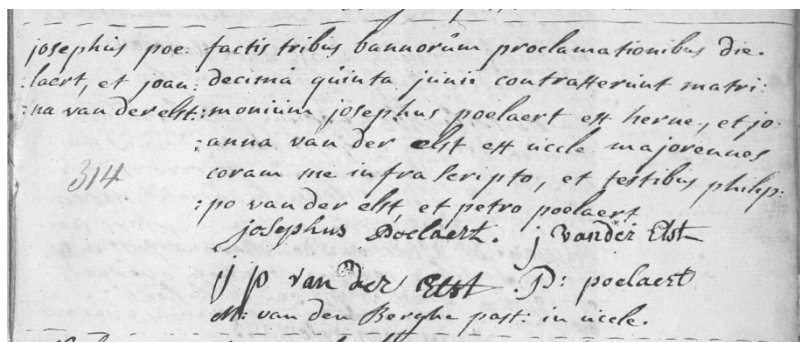 josephus poe: factis tribus bannorum proclamationibus die.
:laert, et joan: decimâ quinta junii contraxerunt matri:
:na van der elst :monium josephus poelaert ex herne, et jo:
:anna van der elst ex uccle majorennes
314 coram me infra scripto, et testibus philip:
:po van der elst, et petro poelaert
josephus Poelaert. j vander Elst
j p van der Elst . P: poelaert
M: van den Berghe past: in uccle.